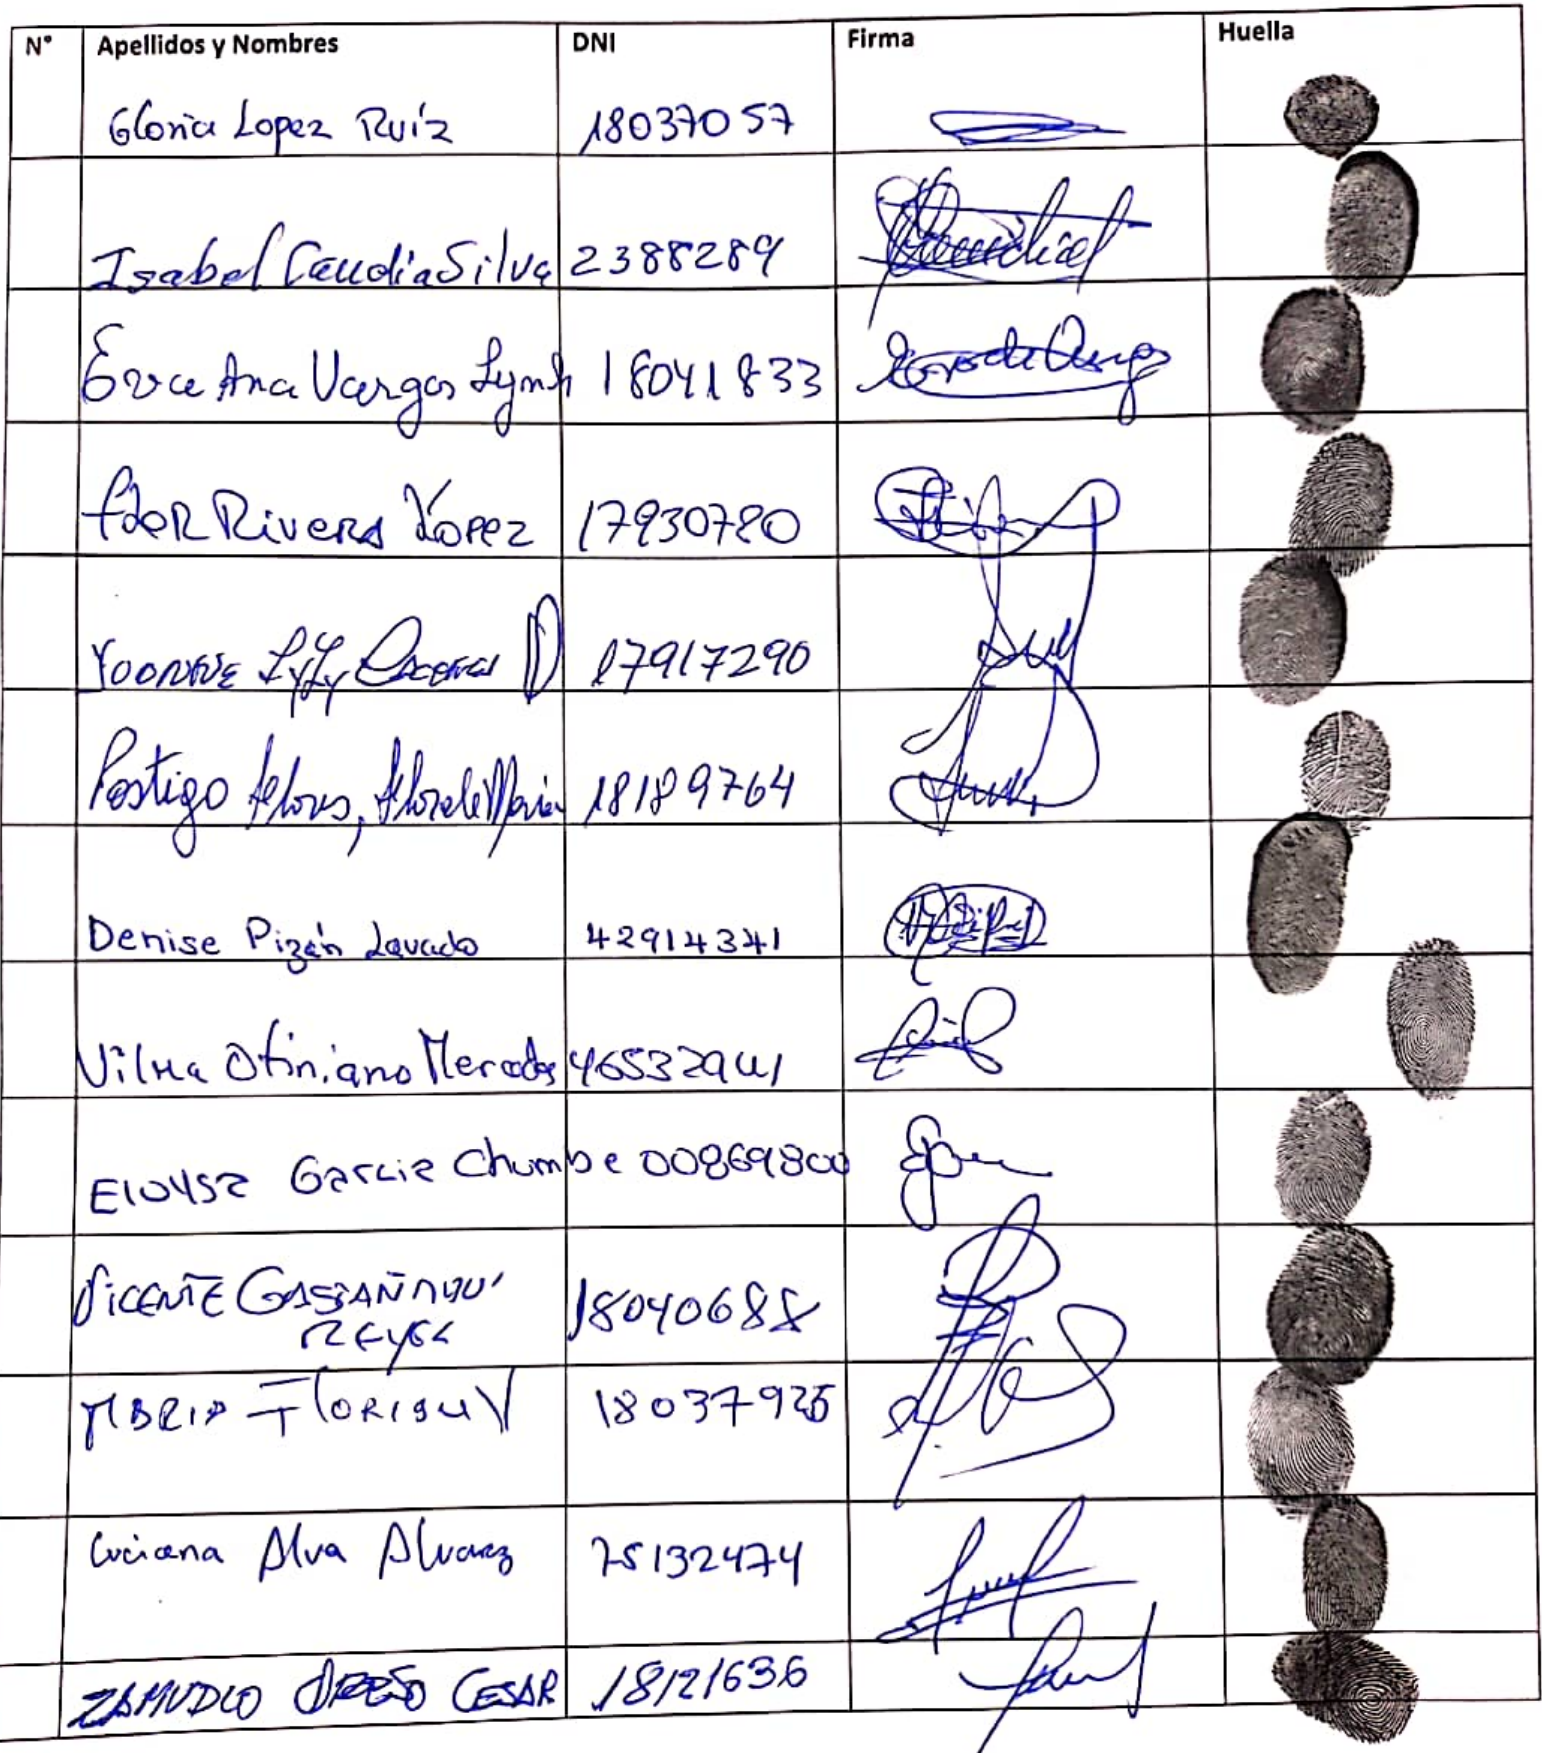 N° Apellidos y Nombres DNI Firma Huella
Gloria Lopez Ruíz 18037057
Isabel Caudia Silva 2388289
Ana Vargas 18041833
Rivera López 17930780
17917290
Postigo 18189764
Denise Pizán Lavado 42914341
Vilma Otiniano Mercedes 46532941
Eloysa Garcia Chumbe 00869800
VICENTE 18040688
REYES
MARIA 18037925
Luciana Alva Alvarez 75132474
ZAMUDIO CESAR 18121636